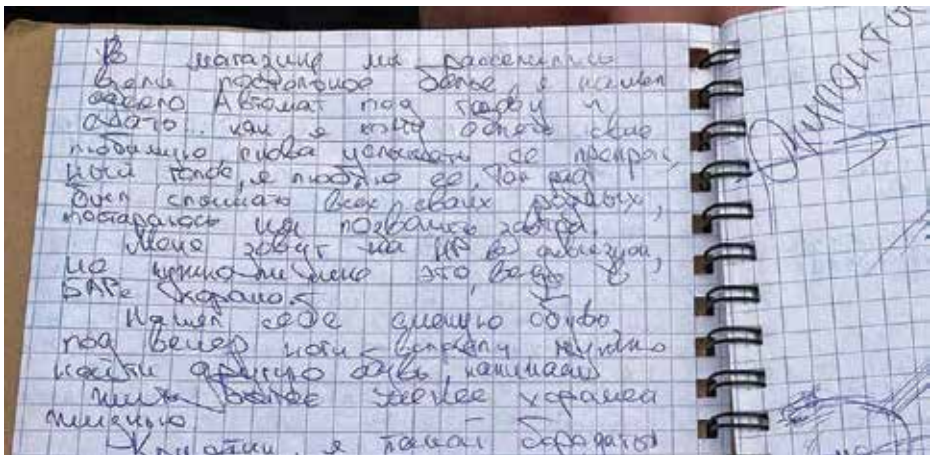 В магазине мы расселились
взяли постельное белье, я нашел
одеяло Автомат под голову и
как я хочу обнять свою
любимую снова услышать ее прекрас
ный голос, я люблю ее, Так рад
был слышать всех своих родных,
постараюсь им позвонить завтра.
Меня зовут на НР в дивизион,
но нужно ли мне это, ведь в
БАРе хорошо.
Нашел себе сменную обувь
под вечер ноги устали нужно
найти другую обувь начинаем
жить более менее хорошей
жизнью.
я такой бородатый
Оккупанты